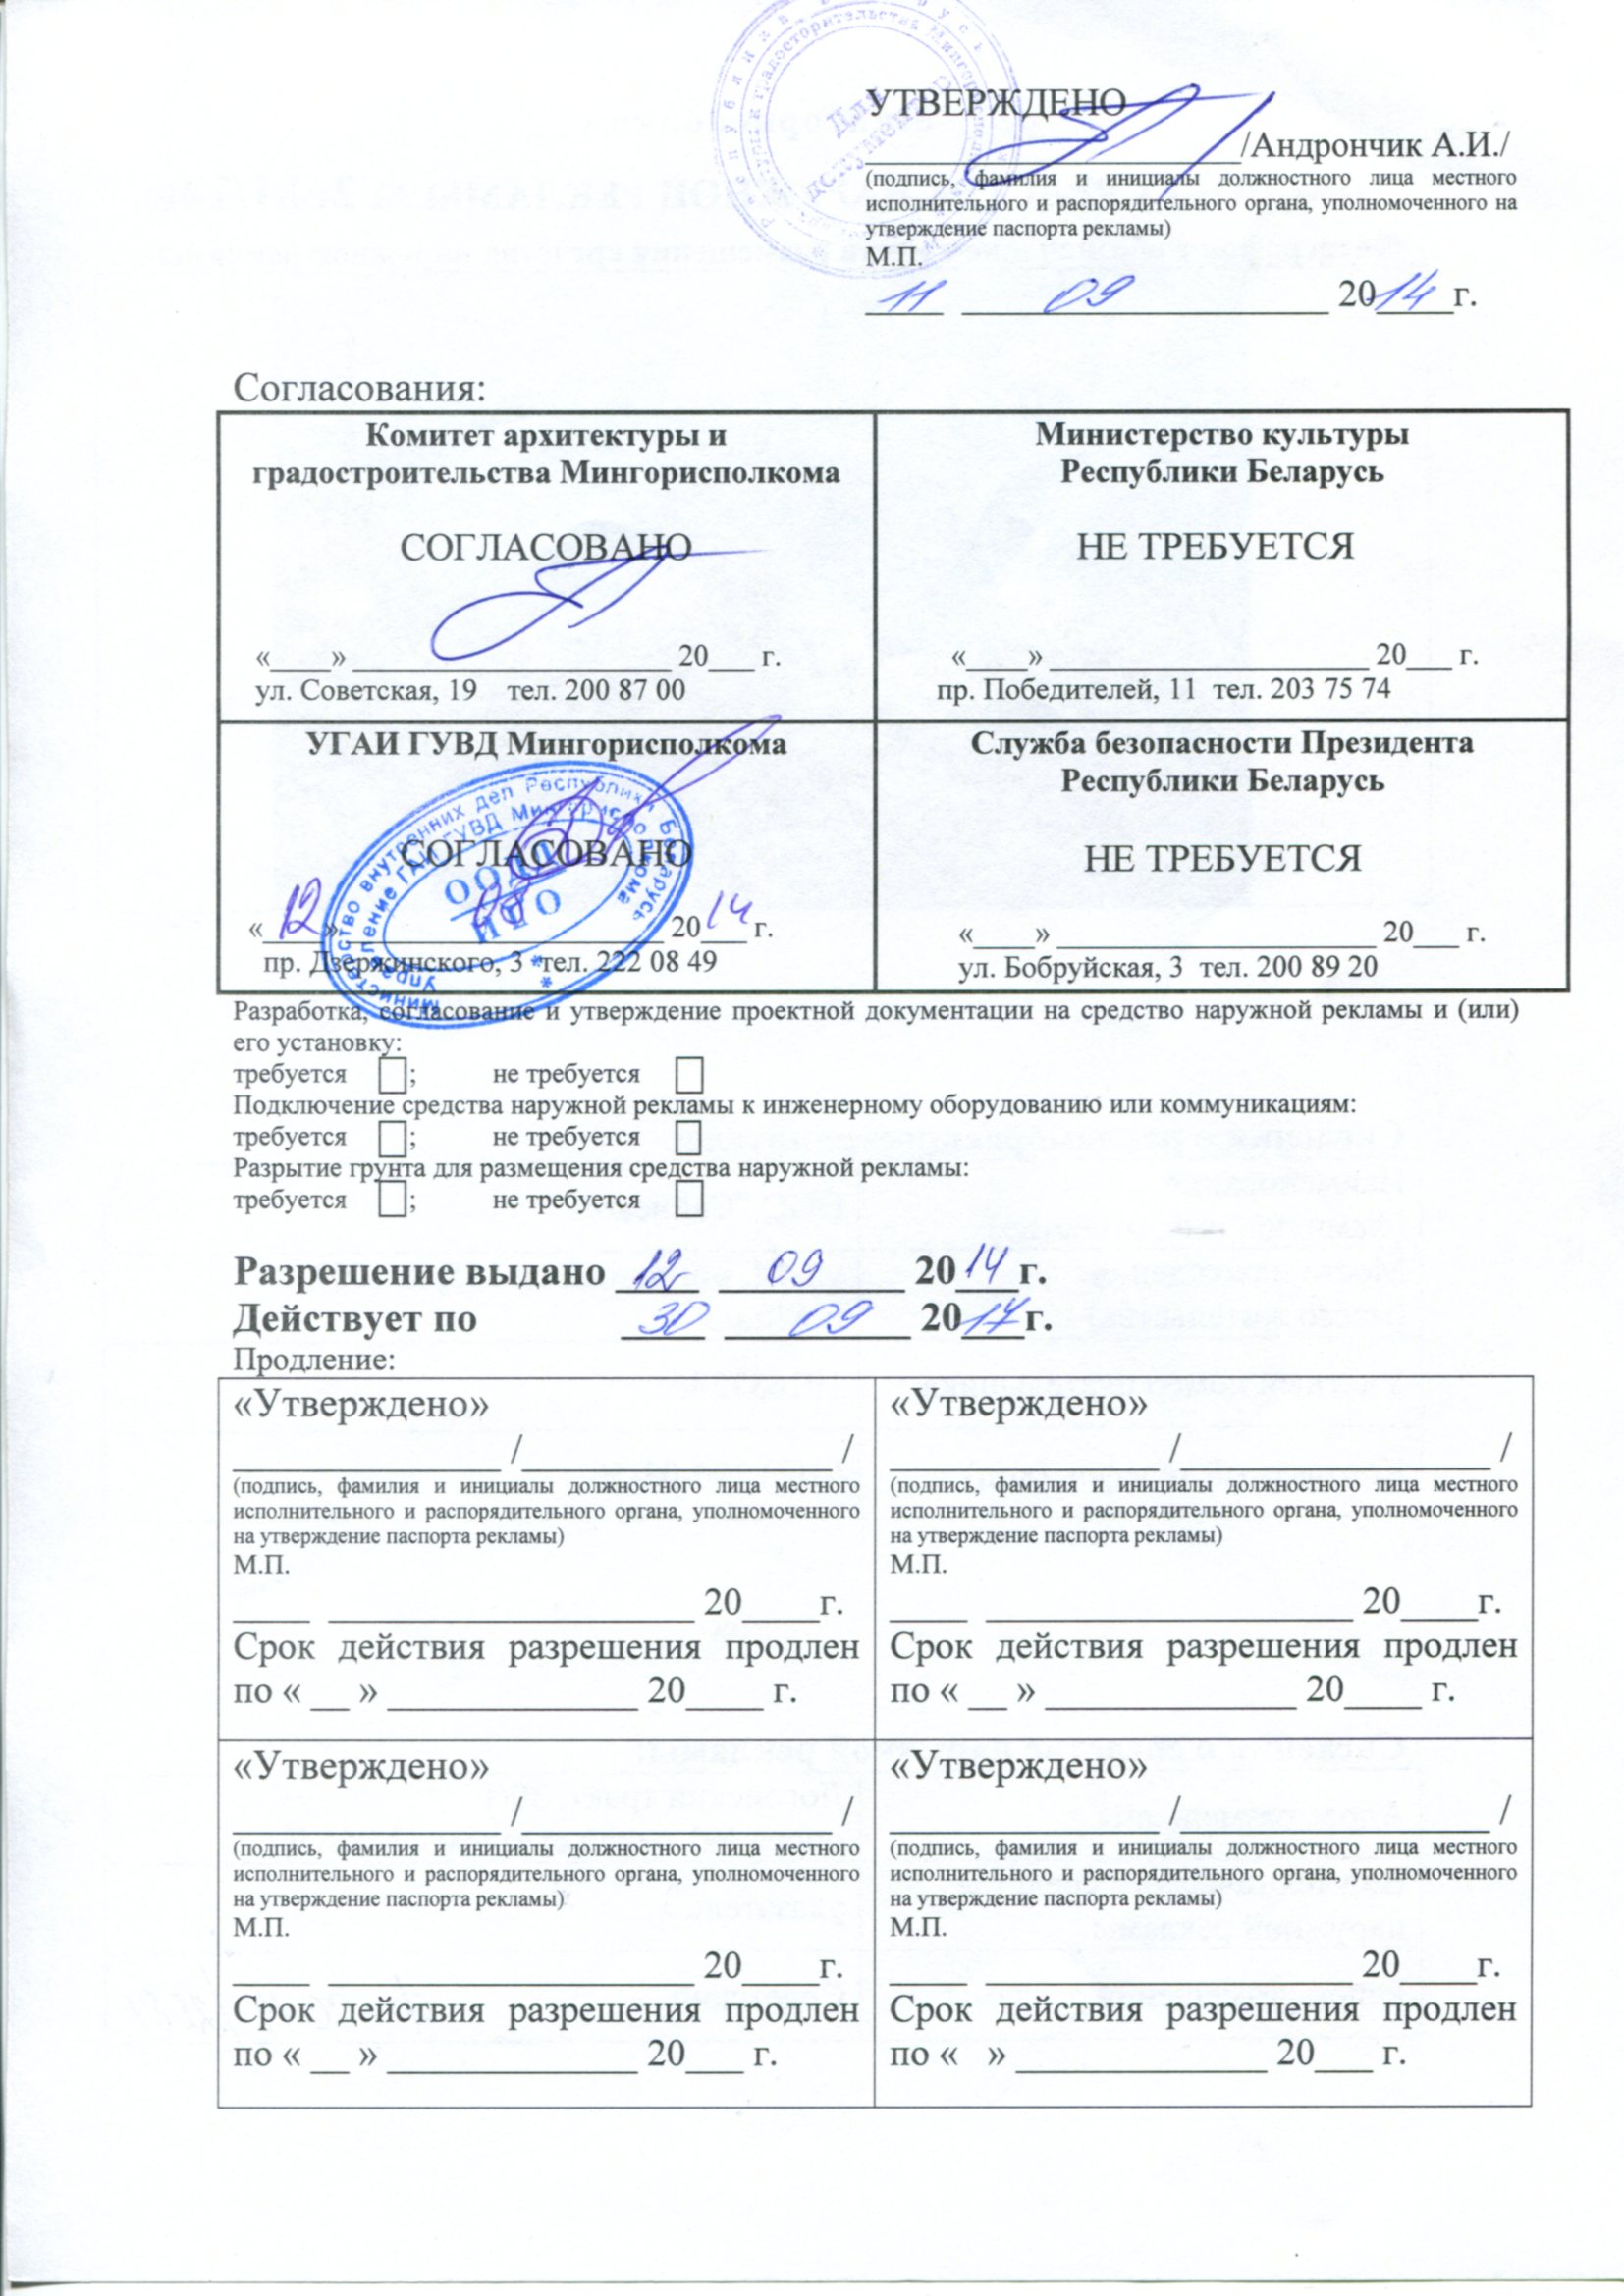 УТВЕРЖДЕНО
____________________/Андрончик А.И./
(подпись, фамилия и инициалы должностного лица местного
исполнительного и распорядительного органа, уполномоченного на
утверждение паспорта рекламы)
М.П.
11 09 2014г.
Для
документов
Согласования:
Комитет архитектуры и
градостроительства Мингорисполкома
СОГЛАСОВАНО
«____» _____________________ 20___ г.
ул. Советская, 19 тел. 200 87 00
Министерство культуры
Республики Беларусь
НЕ ТРЕБУЕТСЯ
«____» _____________________ 20___ г.
пр. Победителей, 11 тел. 203 75 74
УГАИ ГУВД Мингорисполкома
СОГЛАСОВАНО
«12» 2014 г.
пр. Дзержинского, 3 тел. 222 08 49
Министерство внутренних дел Республики Беларусь
Управление ГАИ ГУВД Мингорисполкома
Служба безопасности Президента
Республики Беларусь
НЕ ТРЕБУЕТСЯ
«____» _____________________ 20___ г.
ул. Бобруйская, 3 тел. 200 89 20
Разработка, согласование и утверждение проектной документации на средство наружной рекламы и (или)
его установку:
требуется ☐; не требуется ☐
Подключение средства наружной рекламы к инженерному оборудованию или коммуникациям:
требуется ☐; не требуется ☐
Разрытие грунта для размещения средства наружной рекламы:
требуется ☐; не требуется ☐
Разрешение выдано 12 09 2014г.
Действует по 30 09 2017г.
Продление:
«Утверждено»
______________ /________________ /
(подпись, фамилия и инициалы должностного лица местного
исполнительного и распорядительного органа, уполномоченного
на утверждение паспорта рекламы)
М.П.
____ ___________________ 20____г.
Срок действия разрешения продлен
по « __ » _____________ 20____ г.
«Утверждено»
______________ /________________ /
(подпись, фамилия и инициалы должностного лица местного
исполнительного и распорядительного органа, уполномоченного
на утверждение паспорта рекламы)
М.П.
____ ___________________ 20____г.
Срок действия разрешения продлен
по « __ » _____________ 20____ г.
«Утверждено»
______________ /________________ /
(подпись, фамилия и инициалы должностного лица местного
исполнительного и распорядительного органа, уполномоченного
на утверждение паспорта рекламы)
М.П.
____ ___________________ 20____г.
Срок действия разрешения продлен
по « __ » _____________ 20___ г.
«Утверждено»
______________ /________________ /
(подпись, фамилия и инициалы должностного лица местного
исполнительного и распорядительного органа, уполномоченного
на утверждение паспорта рекламы)
М.П.
____ ___________________ 20____г.
Срок действия разрешения продлен
по « » _____________ 20___ г.